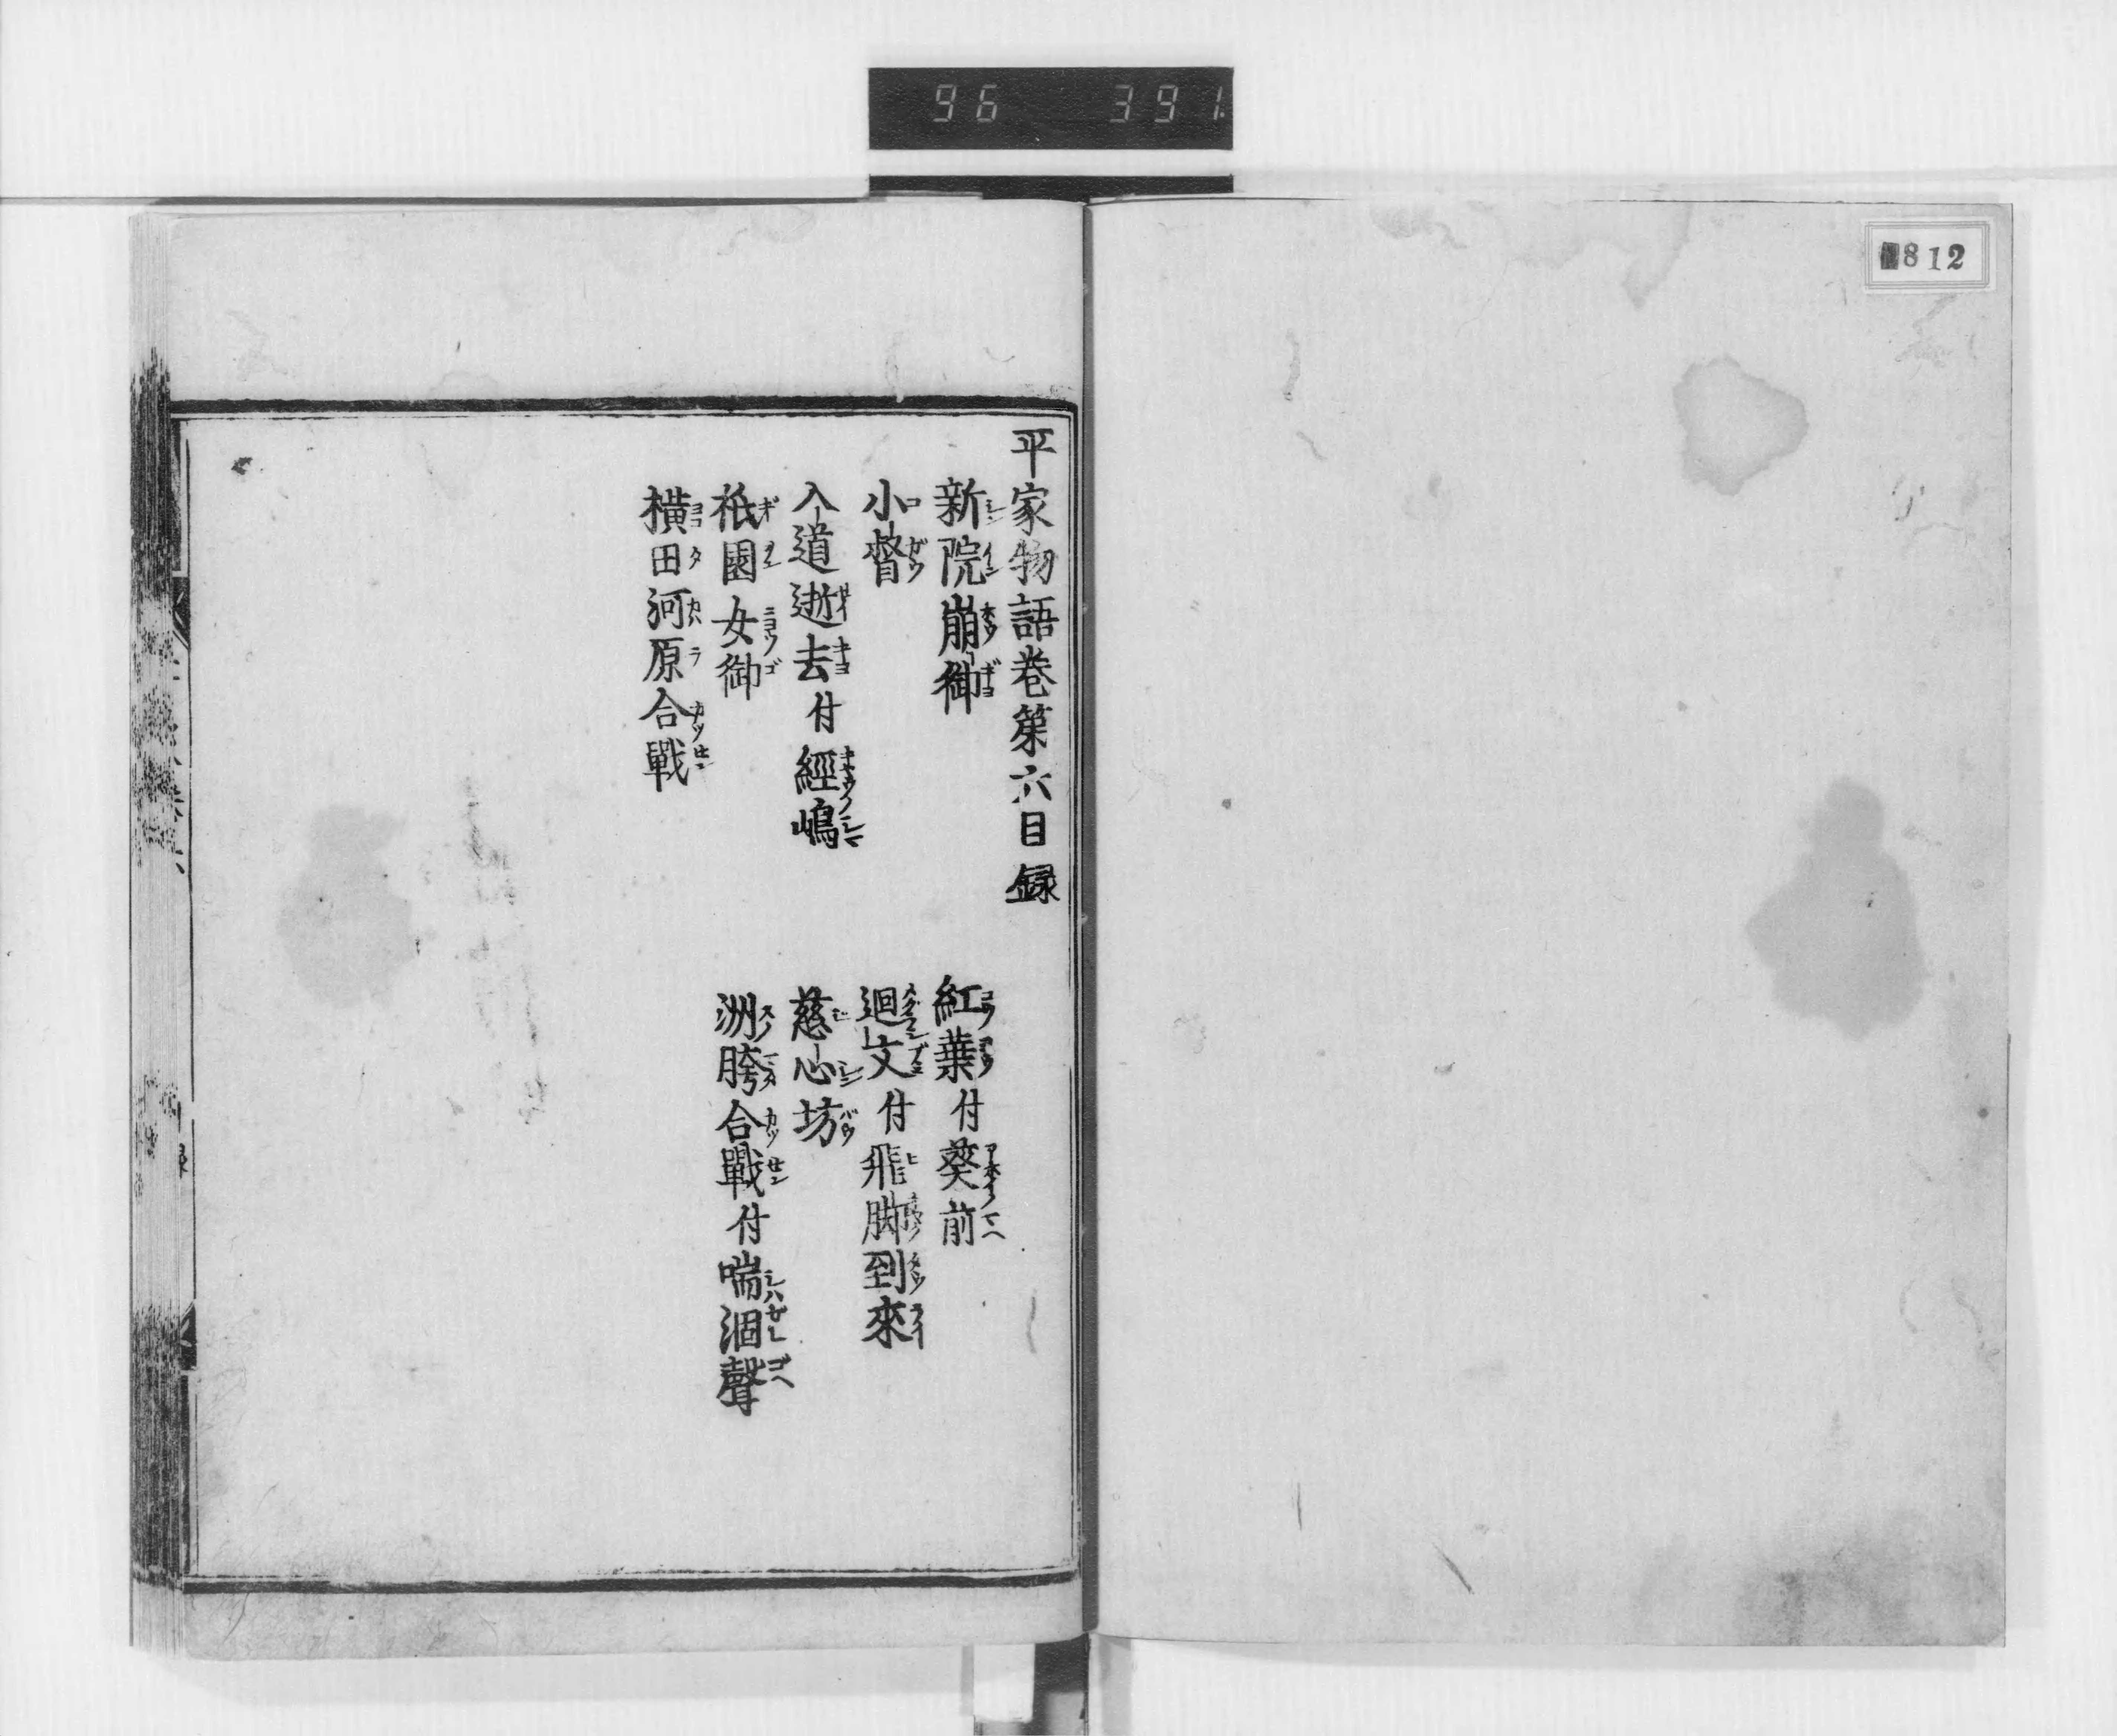 96 391
812
平家物語巻第六目録
新院崩御 紅葉付葵前
小督 迴文付飛脚到來
入道逝去付經嶋 慈心坊
祇園女御 洲胯合戰付喘涸聲
横田河原合戰